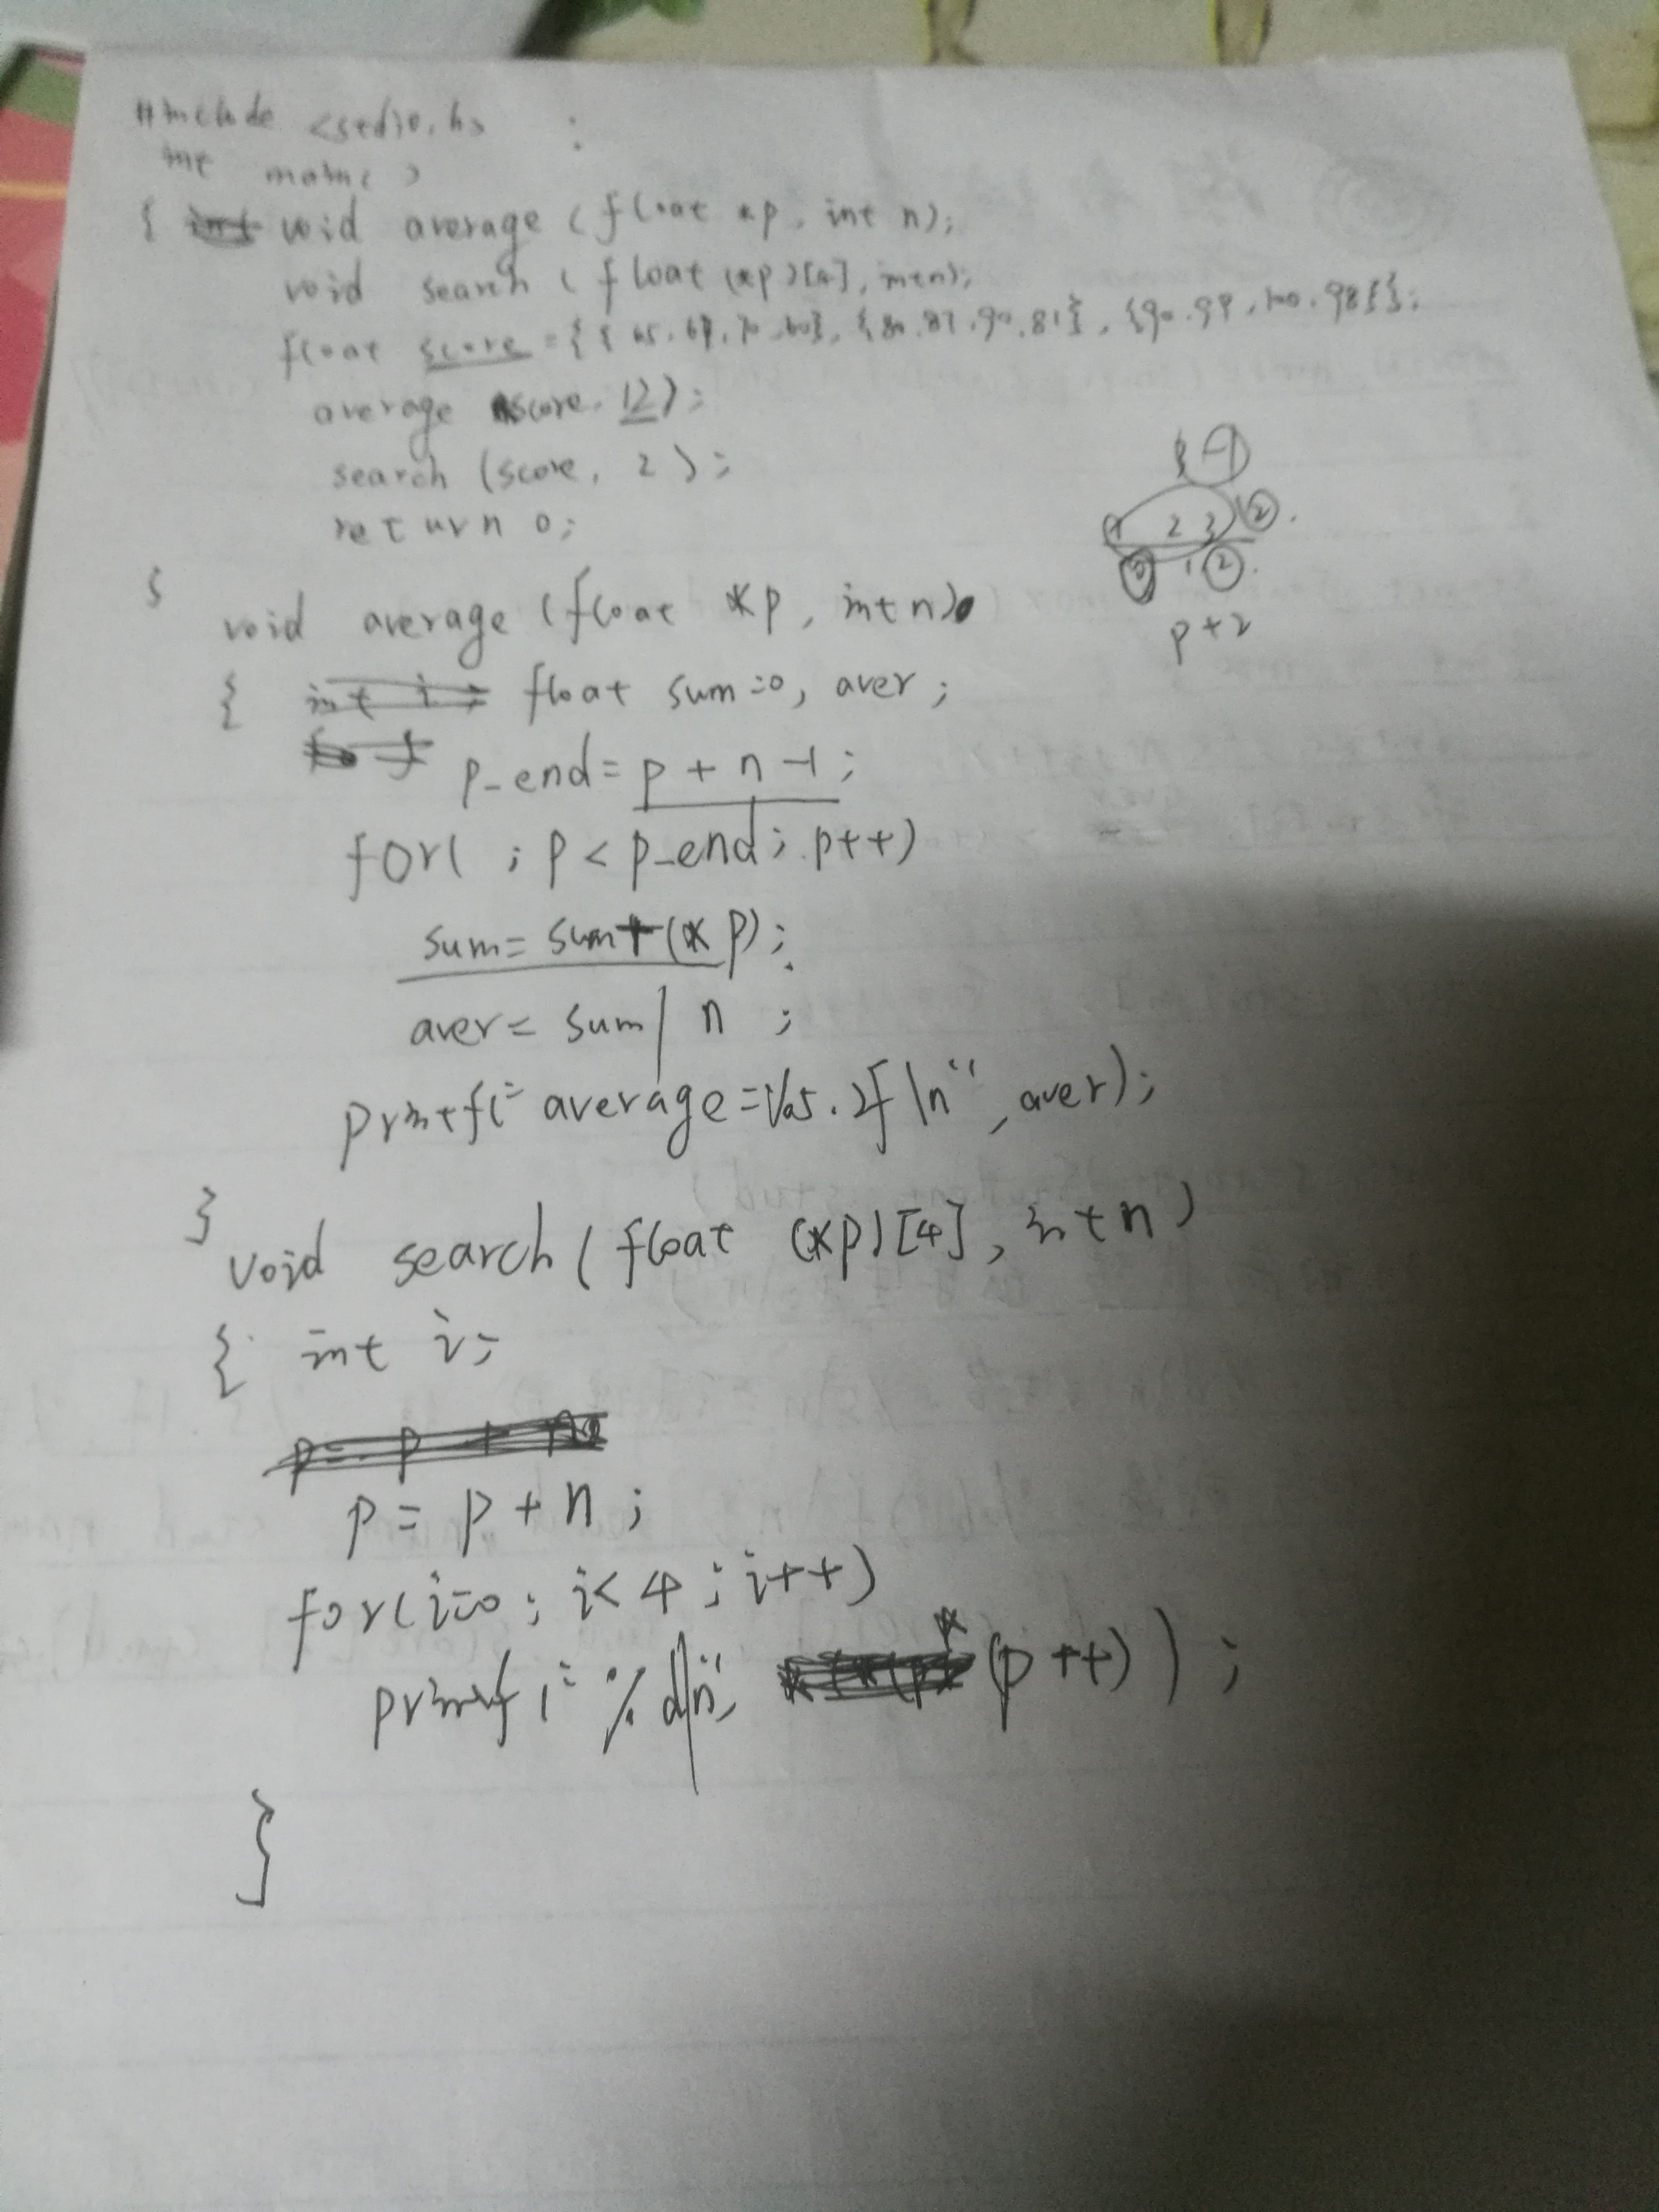 #include <stdio.h>
int main( )
{ void average (float *p, int n);
void search (float (*p)[4], int n);
float score = { { 65, 67, 70, 60}, {80, 87, 90, 81}, {90, 99, 100, 98}};
average (score, 12);
search (score, 2);
return 0;
}
void average (float *p, int n)
{ int i; float sum=0, aver;
p_end = p + n -1;
for( ; p < p_end; p++)
sum = sum+(*p);
aver = sum / n ;
printf(" average=%5.2f\n", aver);
}
void search (float (*p)[4], int n)
{ int i;
p = p + n;
for(i=0; i<4; i++)
printf(" %d\n", *(p++));
}
2 3
1 2
p+2